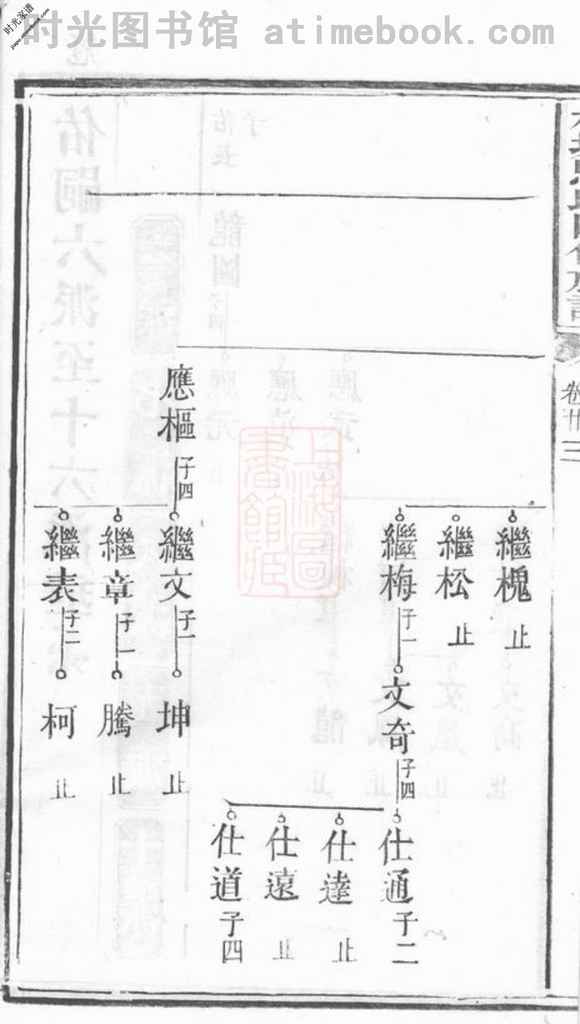 时光图书馆 atimebook.com
时光家谱
卷廿三
繼槐 止
繼松 止
繼梅 子一
文奇 子四
仕通 子二
仕達 止
仕遠 止
仕道 子四
應樞 子四
繼文 子一
坤 止
繼章 子一
騰 止
繼表 子二
柯 止
上海圖書館藏